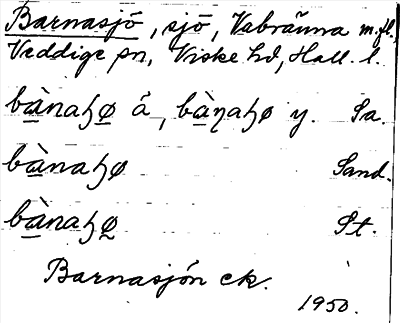 Barnasjö, sjö, Vabränna m.fl.,
Veddige sn, Viske hd, Hall. l.
bànaꜧø å, bàɳaꜧø y. Sa.
bànaꜧø Sand.
bànaꜧø St.
Barnasjön ek.
1950.